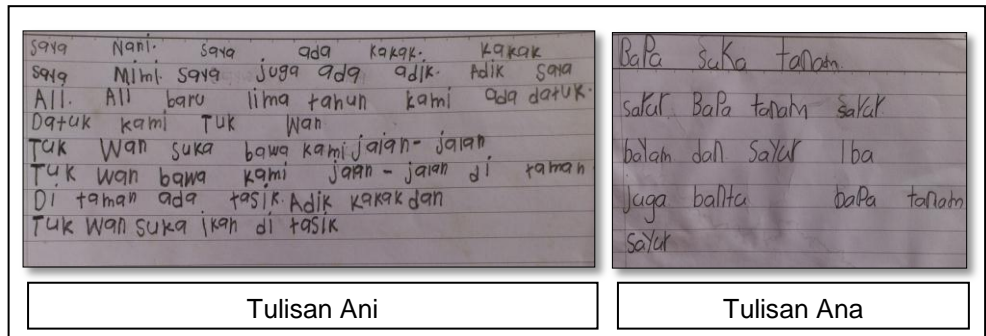 Saya Nani. Saya ada kakak. Kakak
saya Mimi. Saya juga ada adik. Adik saya
All. All baru lima tahun kami ada datuk.
Datuk kami Tuk Wan
Tuk Wan suka bawa kami jalan-jalan
Tuk Wan bawa kami jalan-jalan di taman.
Di taman ada tasik. Adik kakak dan
Tuk Wan suka ikan di tasik
Tulisan Ani
BaPa suka tanam.
satur BaPa tanam sayur
bayam dan Sayur Iba
juga bantu baPa tanam
sayur
Tulisan Ana